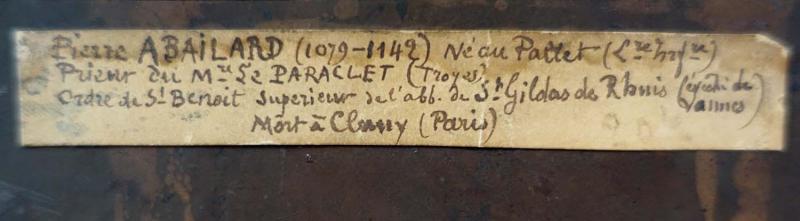 Pierre ABAILARD (1079-1142) Né au Pallet (Lre Infre)
Prieur du Mre Le PARACLET (Troyes)
Ordre de St Benoit Superieur de l'abb. de St Gildas de Rhuis (évêché de Vannes)
Mort à Cluny (Paris)